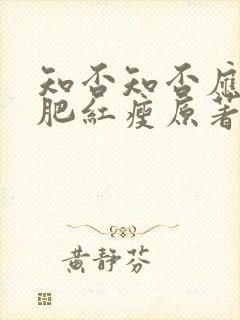 知否知否應
肥紅瘦原著
黃靜芬